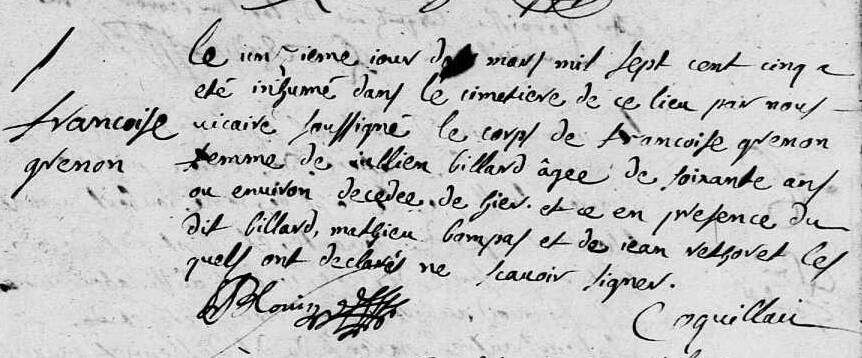 le
jour de mars mil sept cent cinq a
francoise
eté inhumé dans le cimetiere de ce lieu par nous
vicaire soussigné le corps de francoise grenon
grenon
femme de jullien billard âgée de soixante ans
ou environ decedee de hier. et ce en presence du
dit billard, mathieu bompas et de iean rethoret les
quels ont declarés ne scavoir signer.
Blouin
Coquillau